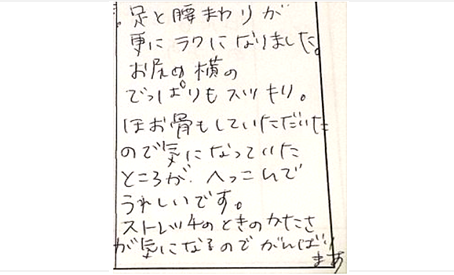 足と腰まわりが
更にラクになりました。
お尻の横の
でっぱりもスッキリ。
ほお骨もしていただいた
ので気になっていた
ところが、へっこんで
うれしいです。
ストレッチのときのかたさ
が気になるのでがんばり
ます